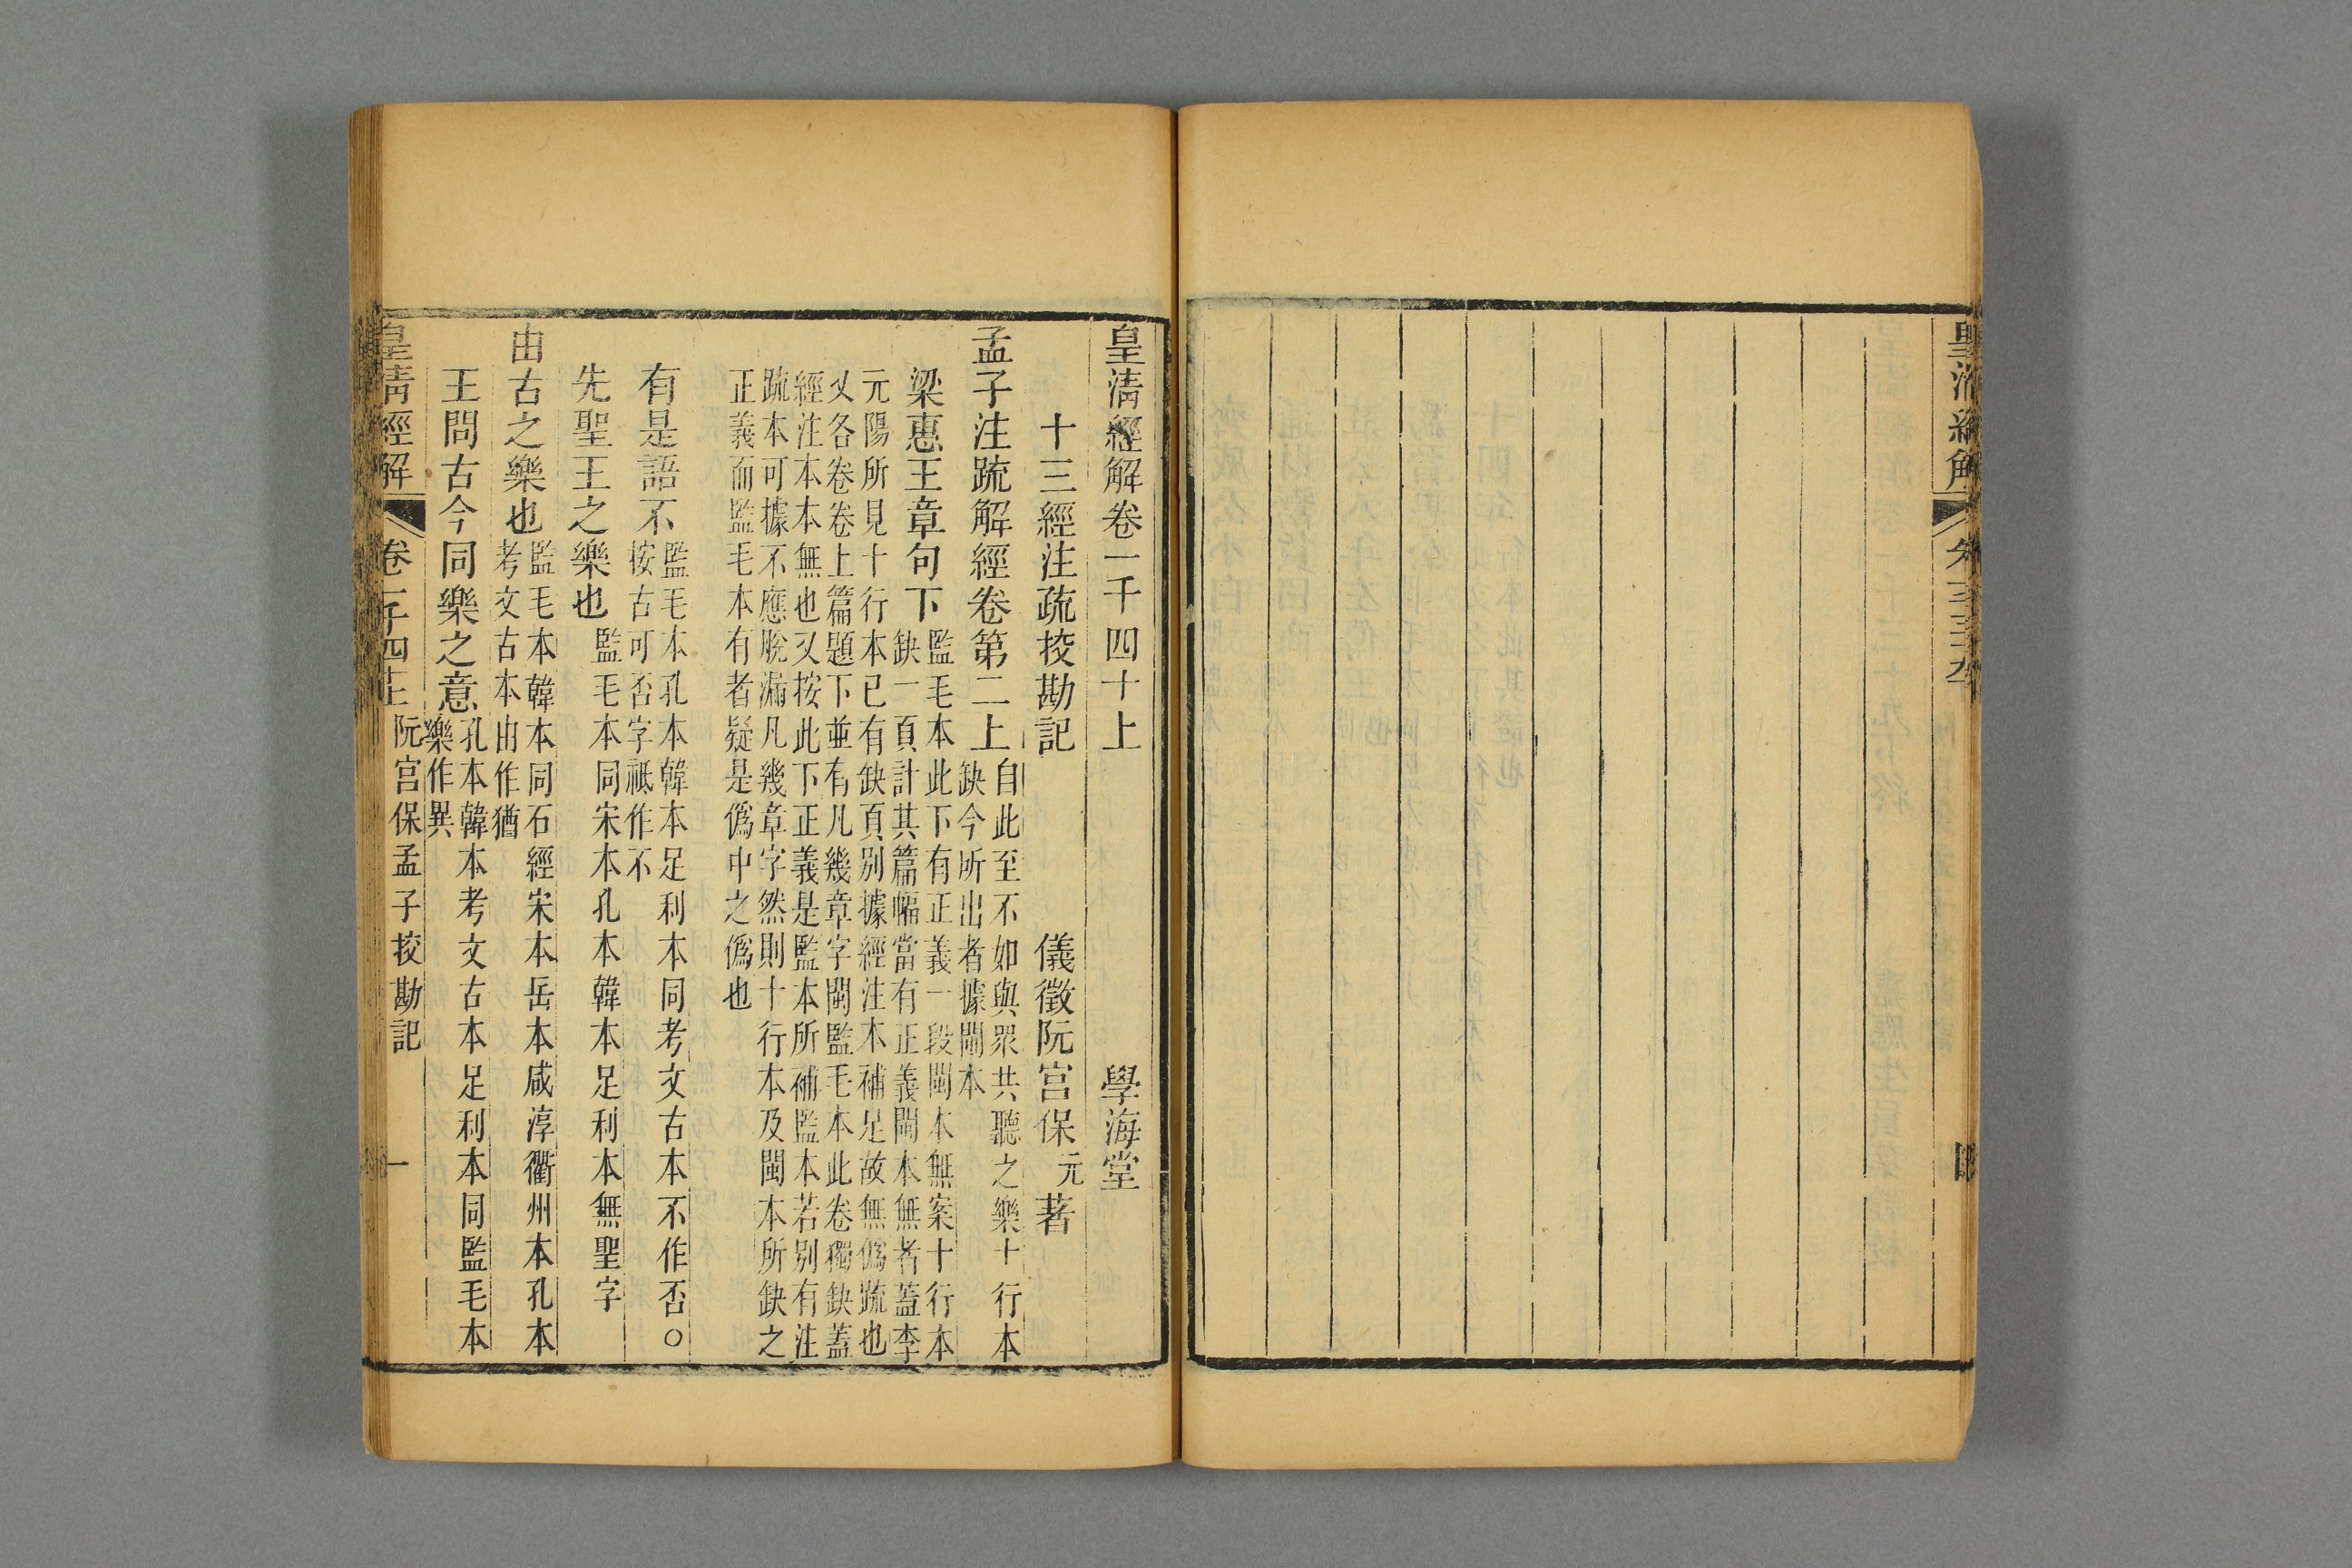 皇清經解卷一千四十上　學海堂
十三經注疏挍勘記　儀徵阮宮保元著
孟子注疏解經卷第二上
自此至不如與眾共聽之樂十行本
缺今所出者據閩本
梁惠王章句下
監毛本此下有正義一段閩本無案十行本
缺一頁計其篇幅當有正義閩本無者蓋李
元陽所見十行本已有缺頁別據經注本補足故無僞疏也
又各卷卷上篇題下並有凡幾章字閩監毛本此卷獨缺蓋
經注本本無也又按此下正義是監本所補監本若別有注
疏本可據不應脫漏凡幾章字然則十行本及閩本所缺之
正義而監毛本有者疑是僞中之僞也
有是語不
監毛本孔本韓本足利本同考文古本不作否○
按古可否字祗作不
先聖王之樂也
監毛本同宋本孔本韓本足利本無聖字
由古之樂也
監毛本韓本同石經宋本岳本咸淳衢州本孔本
考文古本由作猶
王問古今同樂之意
孔本韓本考文古本足利本同監毛本
樂作異
皇清經解　卷一千四十上　阮宮保孟子挍勘記　一